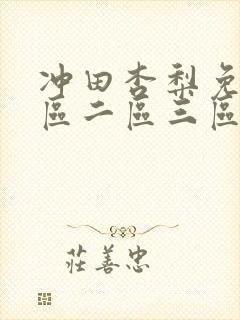 冲田杏梨免
區二區三區
莊善忠